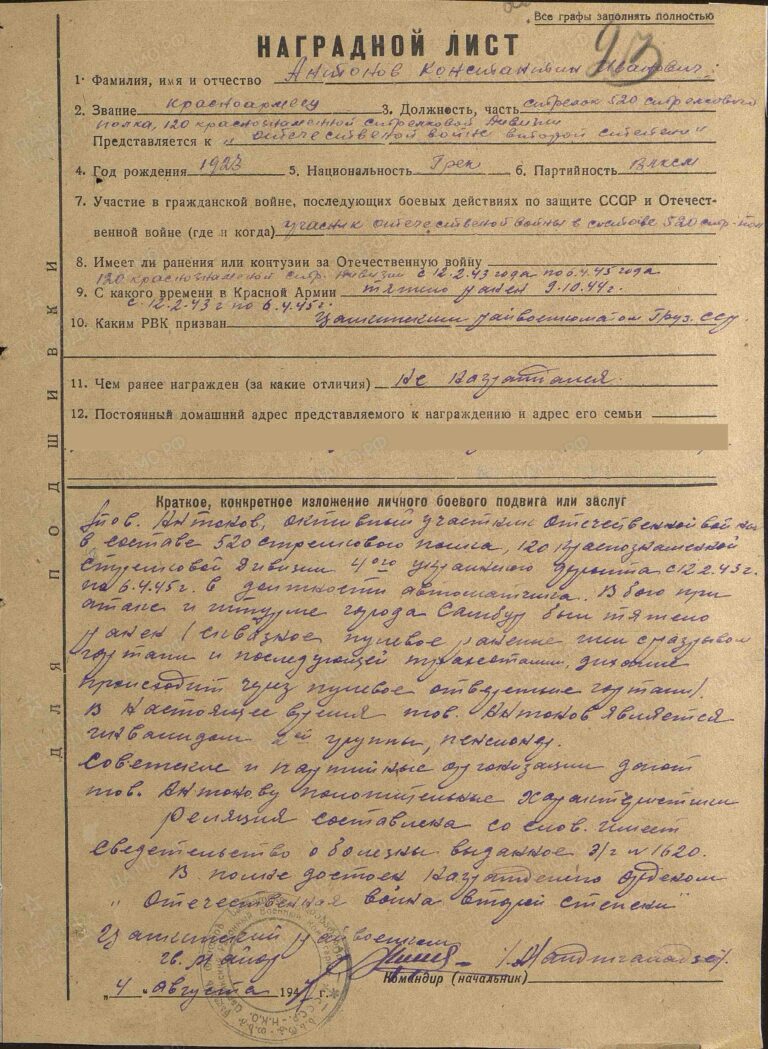 Все графы заполнять полностью
НАГРАДНОЙ ЛИСТ
1. Фамилия, имя и отчество Антонов Константин Иванович
2. Звание красноармеец 3. Должность, часть стрелок 520 стрелкового
полка, 120 краснознаменной стрелковой дивизии
Представляется к „отечественой войны второй степени"
4. Год рождения 1923 5. Национальность Грек 6. Партийность ВЛКСМ
7. Участие в гражданской войне, последующих боевых действиях по защите СССР и Отечест-
венной войне (где и когда) участник отечественой войны в составе 520 стр.
8. Имеет ли ранения или контузии за Отечественную войну
120 краснознаменой стр. дивизии с 12.2.43 года по 6.4.45 года
9. С какого времени в Красной Армии тяжело ранен 9.10.44 г.
с 12.2.43 г по 6.4.45 г.
10. Каким РВК призван Цалкинским райвоенкоматом Груз. ССР
11. Чем ранее награжден (за какие отличия) Не награждался.
12. Постоянный домашний адрес представляемого к награждению и адрес его семьи
ДЛЯ ПОДШИВКИ
Краткое, конкретное изложение личного боевого подвига или заслуг
тов. Антонов, активный участник Отечественной войны
в составе 520 стрелкового полка, 120 Краснознаменной
стрелковой дивизии 4ого украинского фронта с 12.2.43 г.
по 6.4.45 г. в должности автоматчика. В бою при
атаке и штурме города Самбур был тяжело
ранен (сквозное пулевое ранение шеи с разрывом
гортани и последующей дихание
происходит чрез пулевое отверстие гортани).
В настоящее время тов. Антонов является
инвалидом 2ой группы, пенсионер.
Советские и партийные организации дают
тов. Антонову положительные характеристики
реляция составлена со слов. Имеет
сведетельство о болезни выданное э/г № 1620.
В полне достоен награждению орденом
„Отечественная война второй степени"
Цалкинский райвоенком
гв. майор
Командир (начальник)
"4" Августа 1947 г.